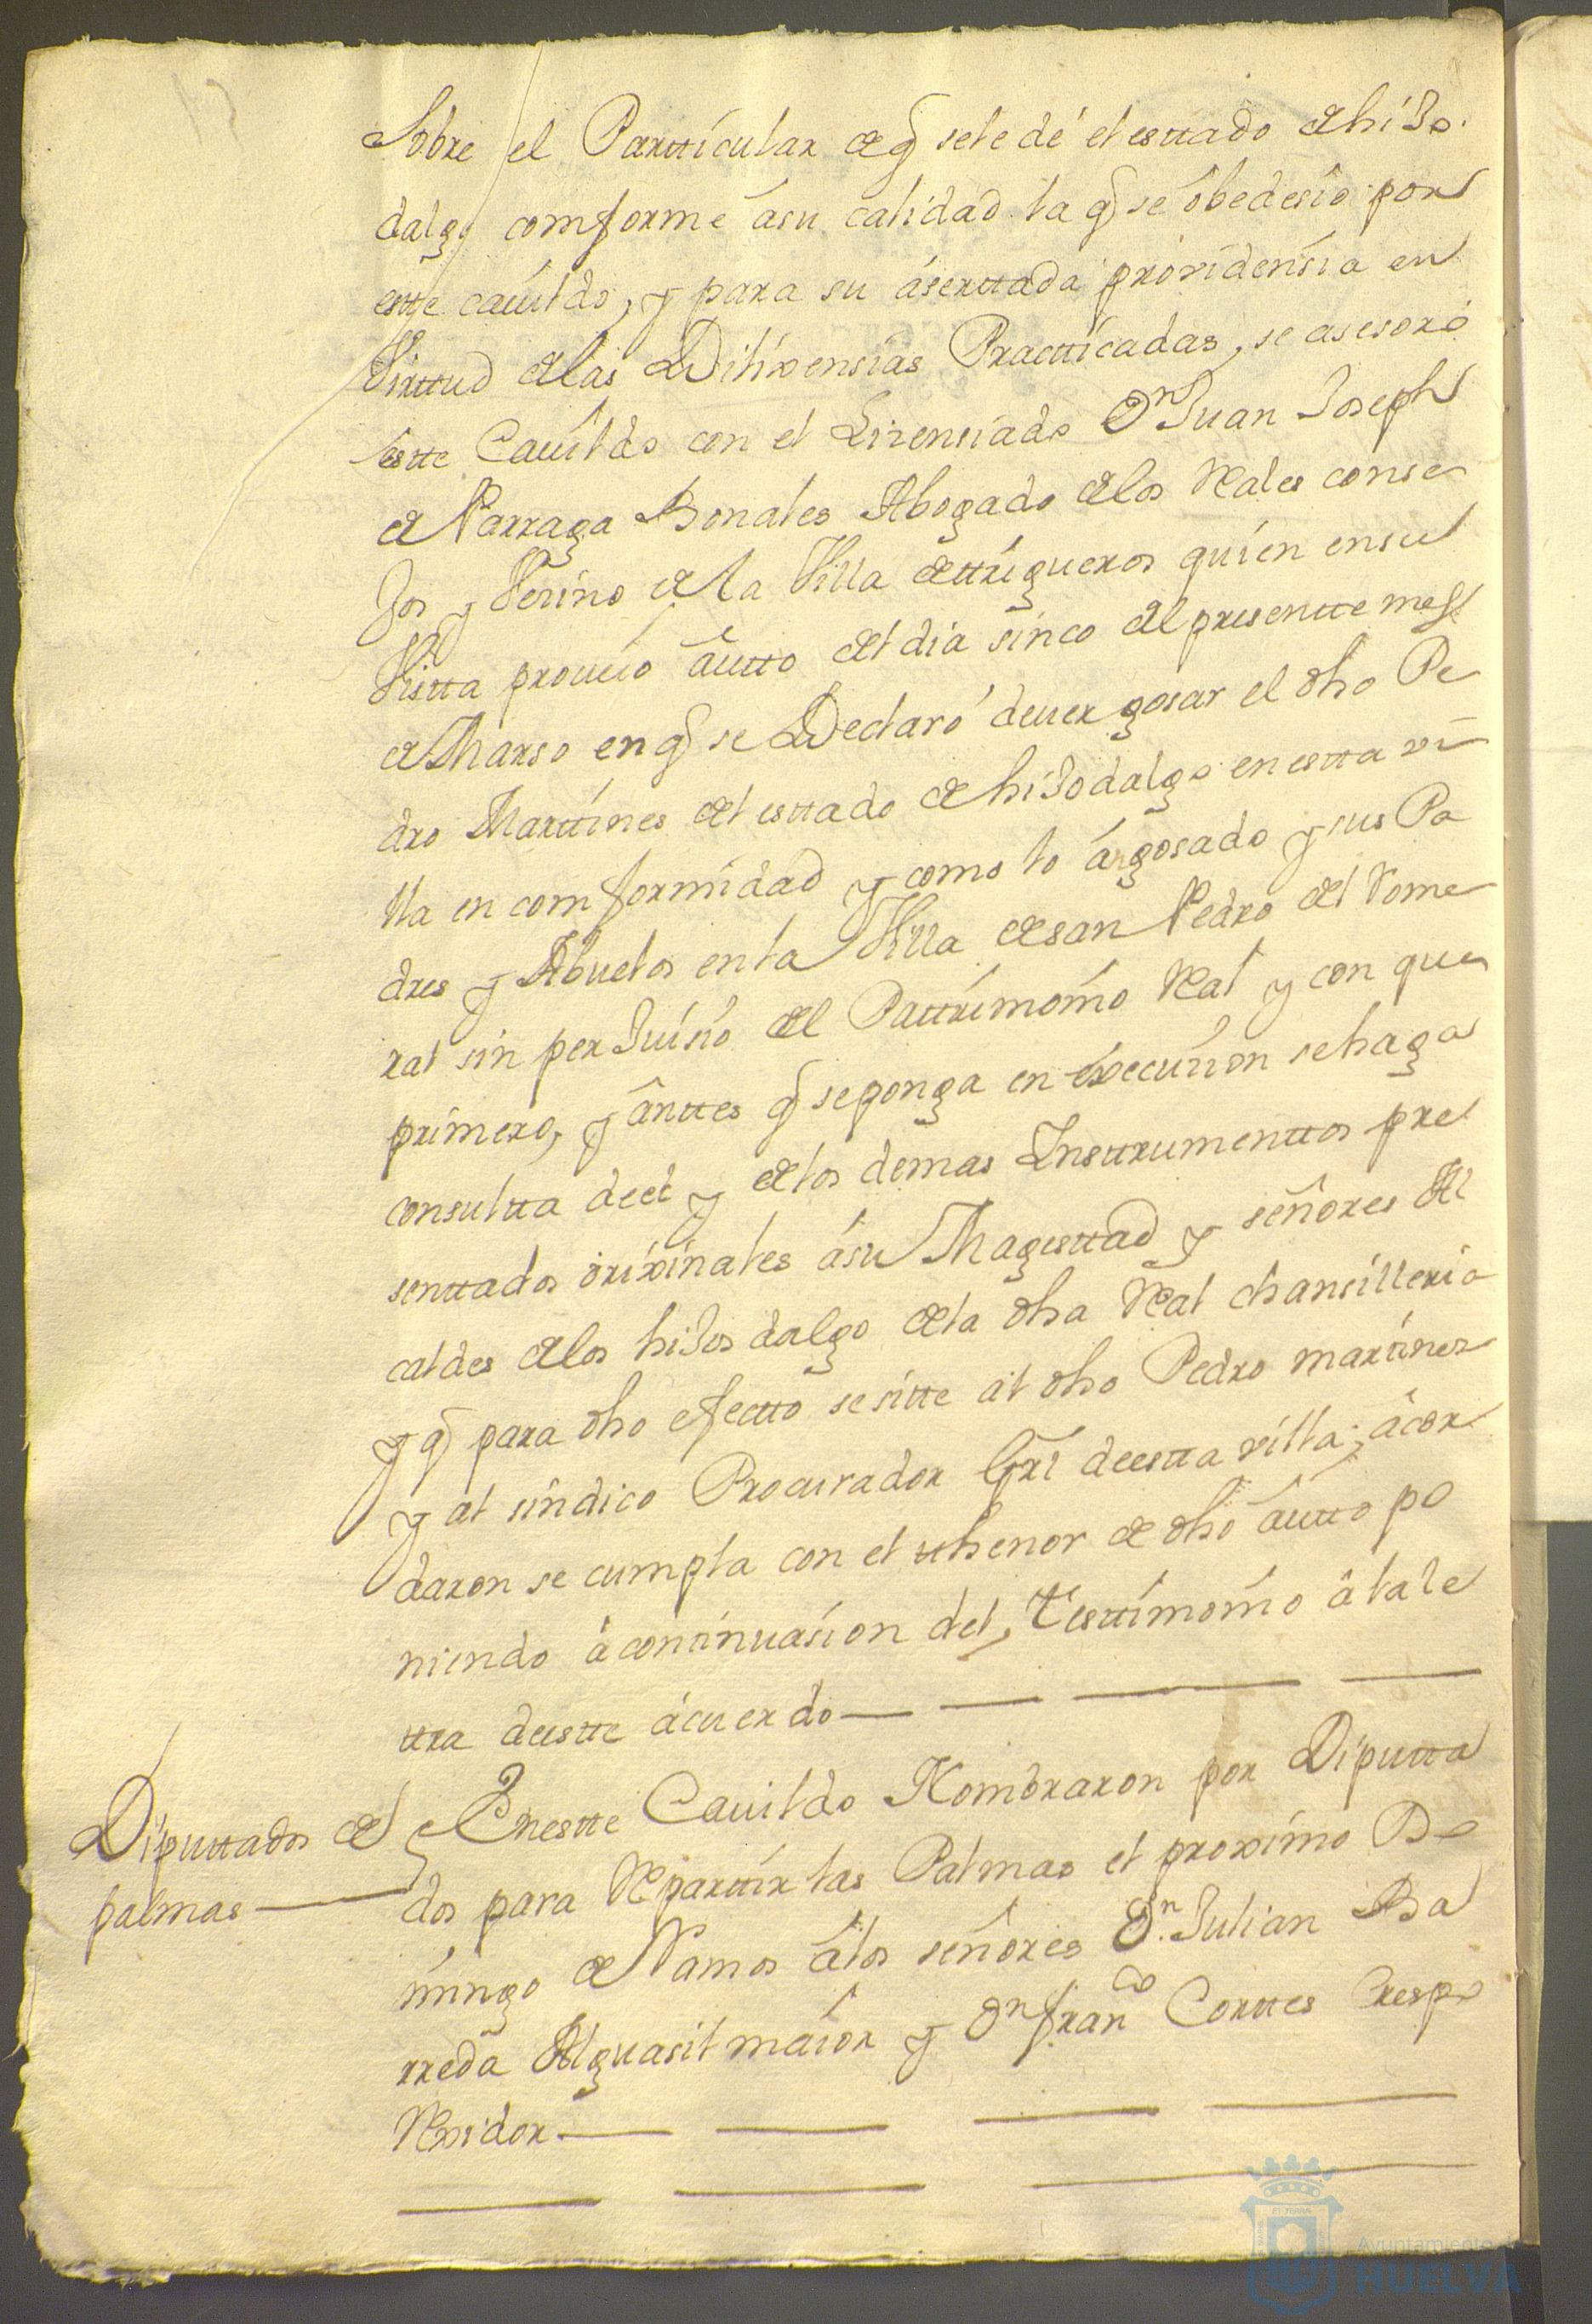 Sobre el Partticular de q̃ se le dé el esttado de hiJo
dalgo comforme â su calidad la q̃ se ôbedesio por
estte cauildo, y para su áserttada providensia en
Virttud de las Dilixensias Practticadas, se asesoró
estte Cauildo con el Lizensiado Dn Juan Joseph
de Parraga Bonales Abogado de los Rales conse
Jos y Vezino de la Villa de ttrigueros quien en su
Vistta proueio âutto del dia sinco del presentte mes
de Marso en q̃ se Declaró deuer gosar el dho Pe
dro Marttines del esttado de hiJodalgo en estta vi
lla en comformidad y como lo á gosado y sus Pa
dres y Abuelos en la Villa de san Pedro del Rome
ral sin perJuisio del Pattrimonio Ral y con que
primero, y ânttes q̃ se ponga en execuzion se haga
consultta de el y de los demas Insttrumenttos pre
senttados orixinales â su Magesttad y señores Al
caldes de los hiJos dalgo de la dha Ral chansilleria
y q̃ para dho efectto se sitte al dho Pedro marttines
y al sindico Procurador Grl de estta villa; âcor
daron se cumpla con el thenor de dho âutto po
niendo â conttinuasion del, Testtimonio â la le
ttra de estte ácuerdo — — — —
Diputtados de
palmas —
En estte Cauildo Nombraron por Diputta
dos para Reparttir las Palmas el proximo Do
mingo de Ramos â los señores Dn. Julian Ba
rreda Alguasil maior y Dn franco Corttes Crespo
Rexidor — — — —